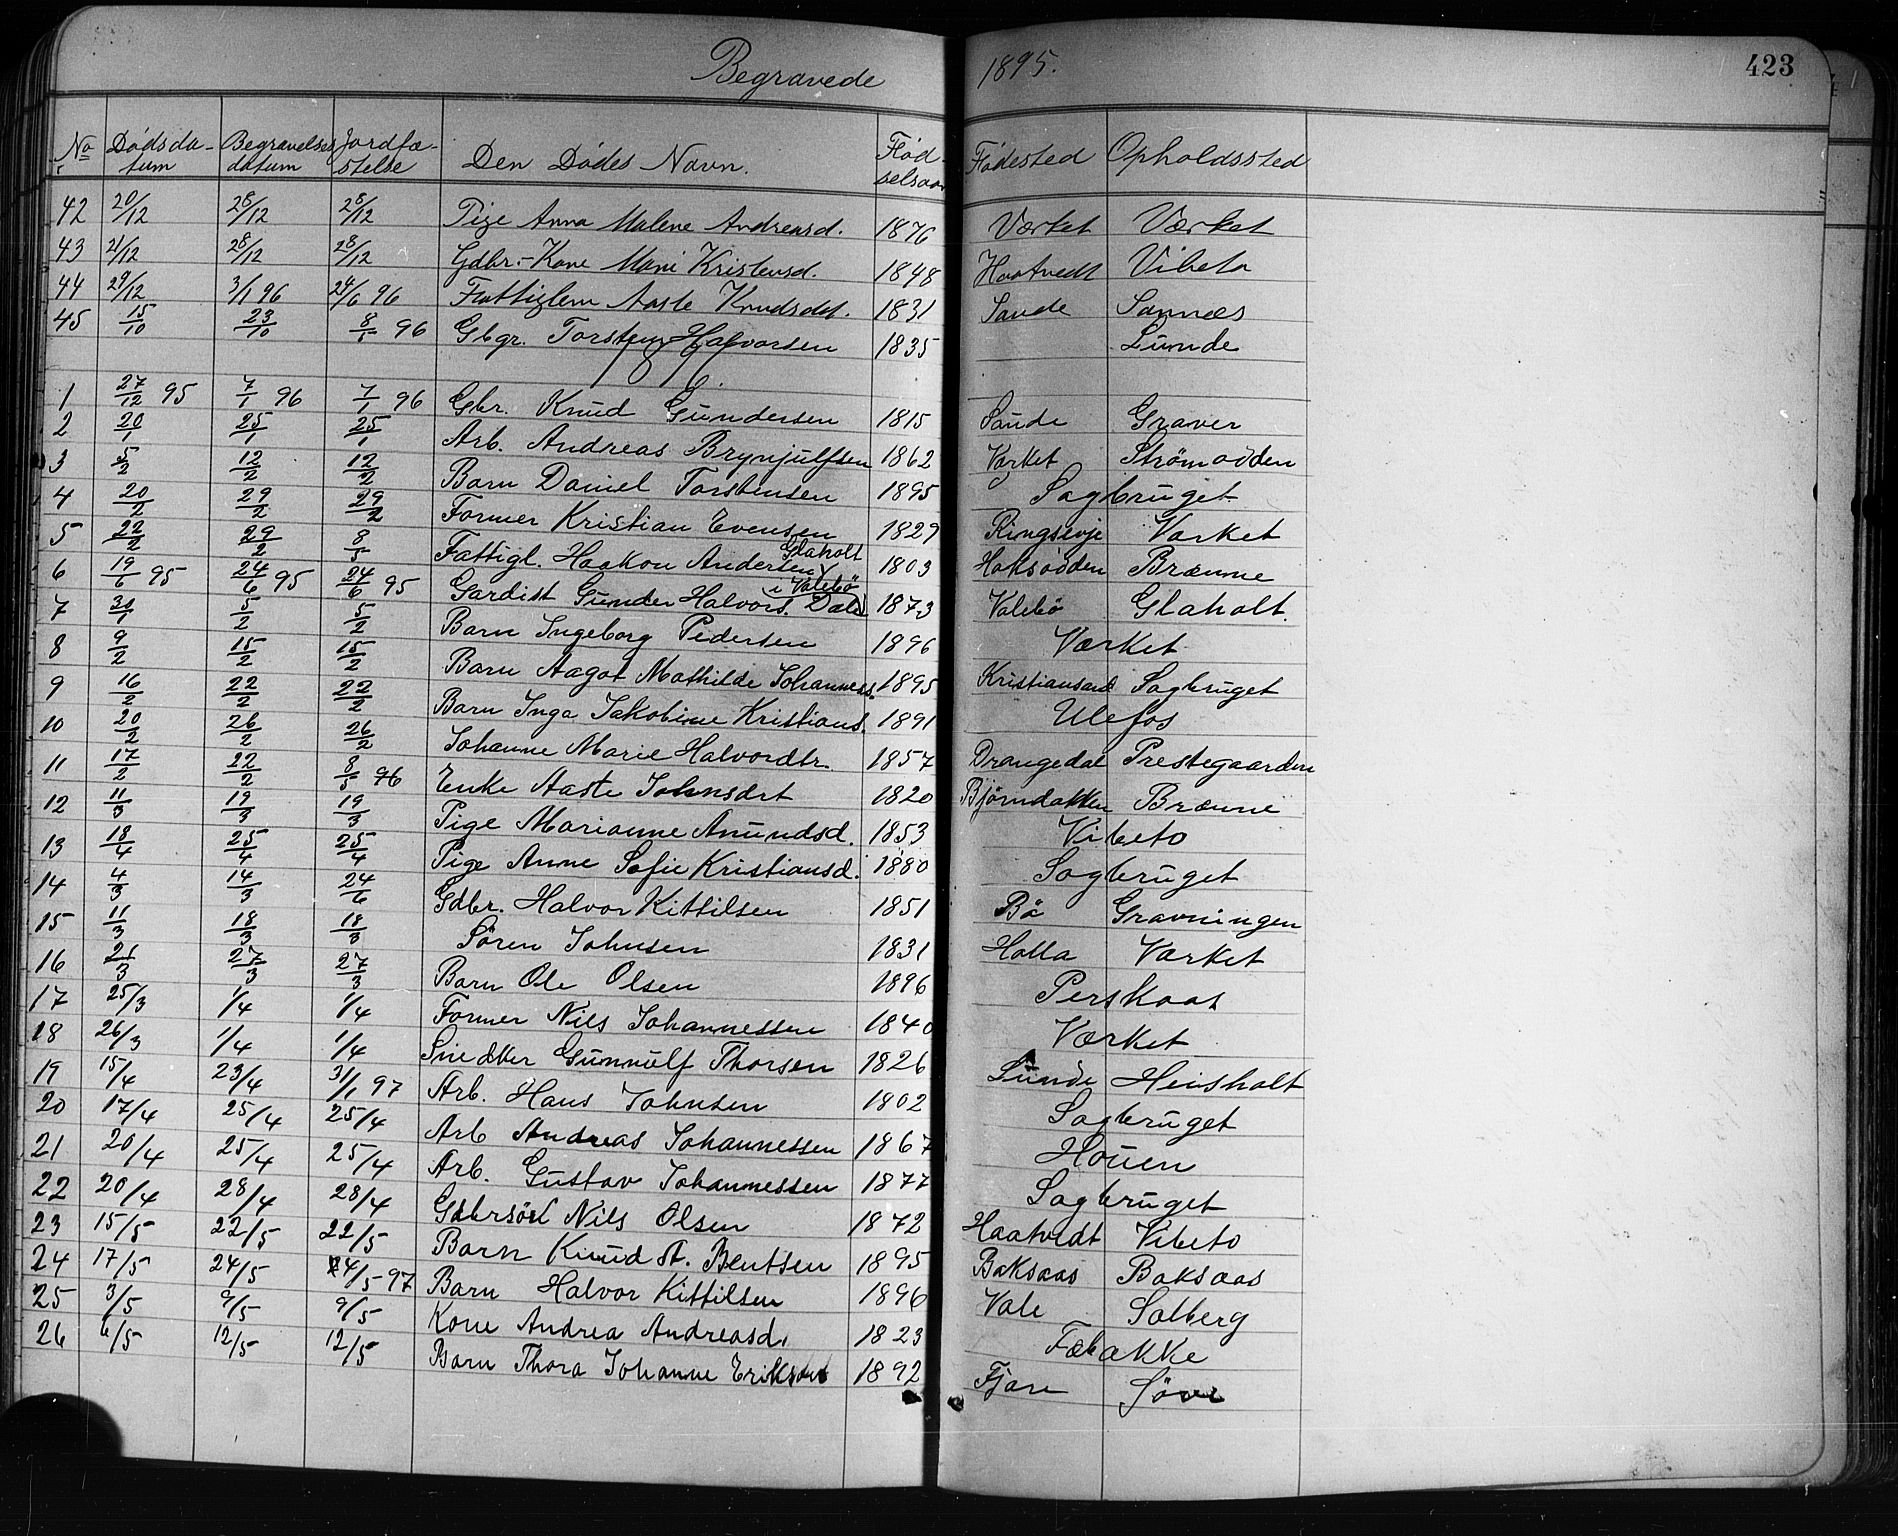 Begravede 1895. 423
No Dødsda-tum Begravelses datum Jordfæ-stelse Den Dødes Navn. Fød-selsaar Fødested Opholdssted
42 20/12 28/12 28/12 Pige Anna Malene Andreasd. 1876 Værket Værket
43 21/12 28/12 28/12 Gdbr.-Kone Mari Kristensd. 1848 Haatvedt Vibeto
44 29/12 3/1 96 24/6 96 Fattiglem Aaste Knudsdat. 1831 Saude Sannæs
45 15/10 23/10 8/5 96 Gbgr. Torsten Halvorsen 1835 Lunde
1 27/12 95 7/1 96 7/1 96 Gbr. Knud Gundersen 1815 Saude Graver
2 20/1 25/1 25/1 Arb. Andreas Brynjulfsen 1862 Værket Strømodden
3 5/2 12/2 12/2 Barn Daniel Torstensen 1895 Sagbruget
4 20/2 29/2 29/2 Former Kristian Evensen 1829 Ringsevje Værket
5 22/2 29/2 8/5 Fattigl. Haakon Andersen 1803 Hoksodden Brænne
Glaholt
i Valebø
6 19/6 95 24/6 95 24/6 95 Gardist Gunder Halvors. Dale 1873 Valebø Glaholt.
7 30/1 5/2 5/2 Barn Ingeborg Pedersen 1896 Værket
8 9/2 15/2 15/2 Barn Aagot Mathilde Johanness. 1895 Kristiansand Sagbruget
9 16/2 22/2 22/2 Barn Inga Jakobine Kristians. 1891 Ulefos
10 20/2 26/2 26/2 Johanne Marie Halvordtr. 1857 Drangedal Prestegaarden
11 17/2 22/2 8/5 96 Enke Aaste Johnsdrt 1820 Bjørndakken Brænne
12 11/3 19/3 19/3 Pige Marianne Anundsd. 1853 Vibeto
13 18/4 25/4 25/4 Pige Anne Sofie Kristiansd. 1880 Sagbruget
14 4/3 14/3 24/6 Gdbr. Halvor Kittilsen 1851 Bø Gravningen
15 11/3 18/3 18/3 Søren Johnsen 1831 Holla Værket
16 21/3 27/3 27/3 Barn Ole Olsen 1896 Perskaas
17 25/3 1/4 1/4 Former Nils Johannessen 1840 Værket
18 26/3 1/4 1/4 Snedker Gunnulf Thorsen 1826 Lunde Heisholt
19 15/4 23/4 31/1 97 Arb. Hans Johnsen 1802 Sagbruget
20 17/4 25/4 25/4 Arb Andreas Johannessen 1867 Houen
21 20/4 25/4 25/4 Arb. Gustav Johannessen 1877 Sagbruget
22 20/4 28/4 28/4 Gdbrsøn Nils Olsen 1872 Haatvedt Vibeto
23 15/5 22/5 22/5 Barn Knud A. Bentsen 1895 Baksaas Baksaas
24 17/5 24/5 24/5 97 Barn Halvor Kittilsen 1896 Vale Solberg
25 3/5 9/5 9/5 Kone Andrea Andreasd. 1823 Fæbakke
26 6/5 12/5 12/5 Barn Thora Johanne Eriksdat 1892 Fjære Søve